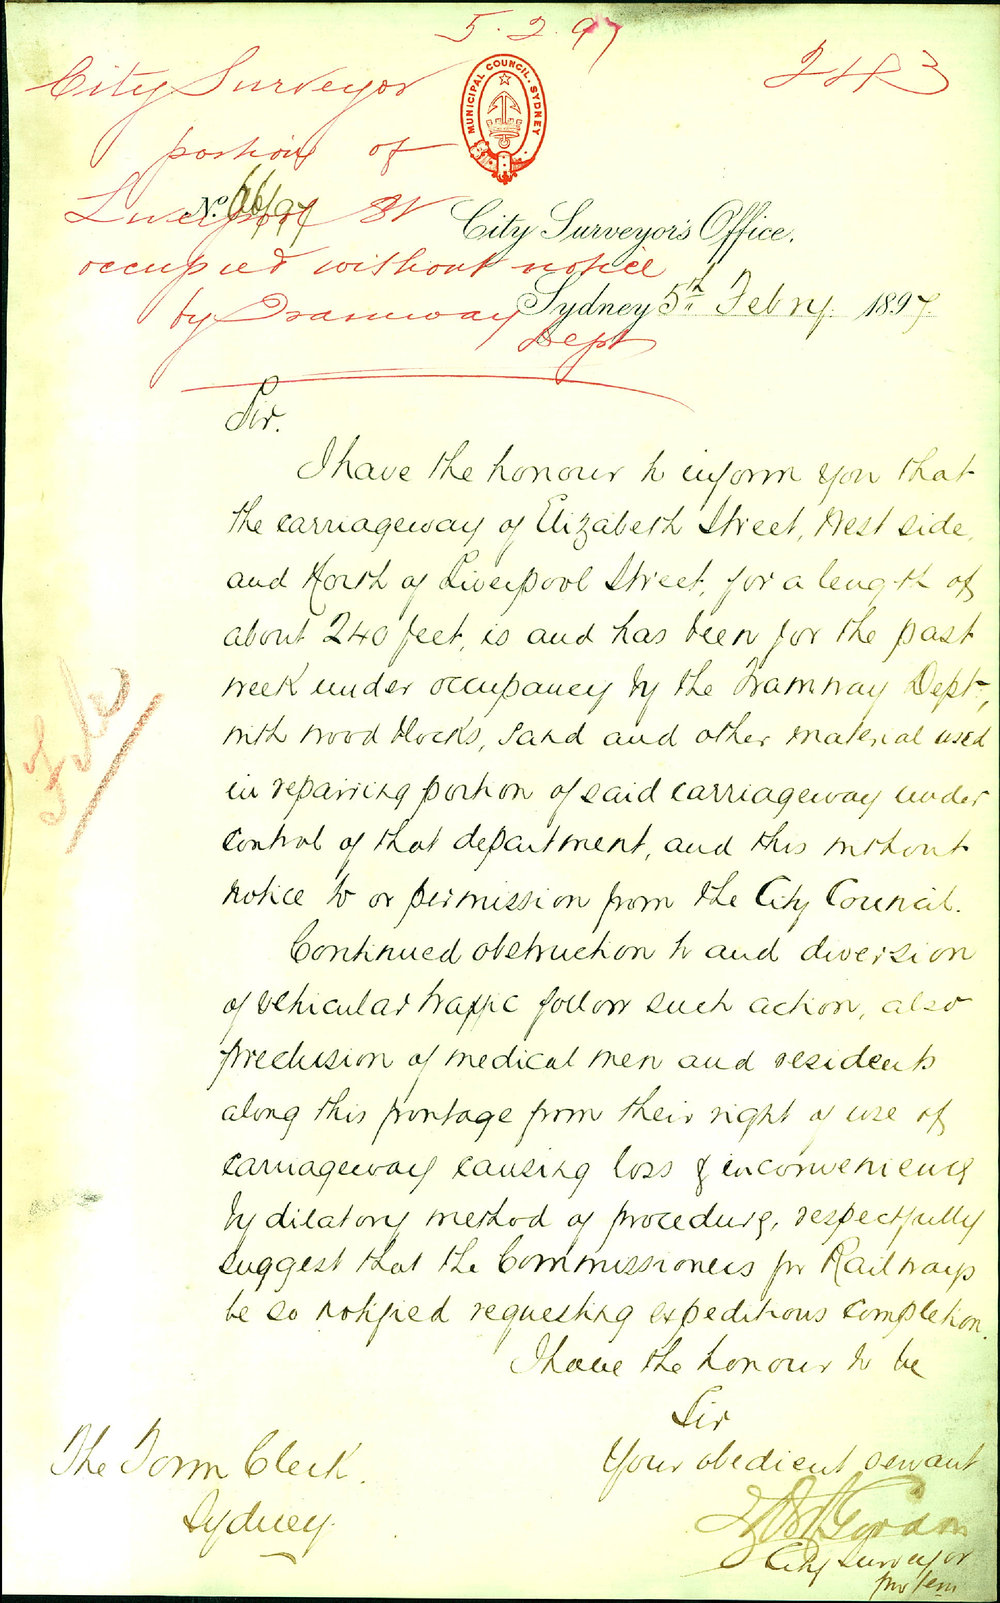 5.2.97
243
City Surveyor
portion of
Liverpool St
occupied without notice
by Tramway
Dept
MUNICIPAL COUNCIL. SYDNEY
No. 66/97
City Surveyor's Office.
Sydney 5th Febry. 1897.
Sir.
I have the honour to inform you that
the carriageway of Elizabeth Street, West side,
and North of Liverpool Street, for a length of
about 240 feet, is and has been for the past
week under occupancy by the Tramway Dept.,
with wood blocks, sand and other material used
in repairing portion of said carriageway under
control of that department, and this without
notice to or permission from the City Council.
Continued obstruction to and diversion
of vehicular traffic follow such action, also
preclusion of medical men and residents
along this frontage from their right of use of
carriageway causing loss & inconvenience
by dilatory method of procedure, respectfully
suggest that the Commissioners for Railways
be so notified requesting expeditious completion.
I have the honour to be
Sir
Your obedient servant
Gordon
City Surveyor
pro tem
The Town Clerk.
Sydney.
File